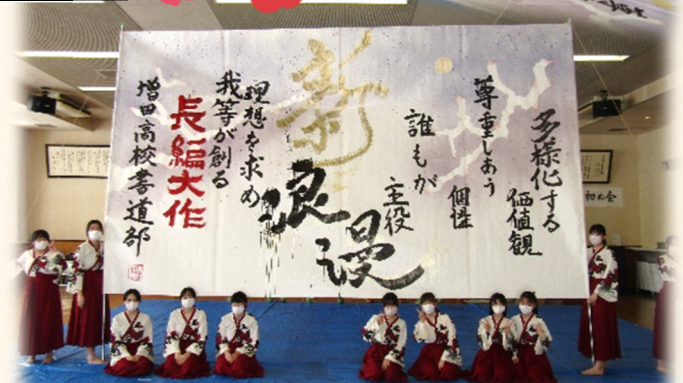 多様化する
価値観
尊重しあう
個性
誰もが
主役
新
浪漫
理想を求め
我等が創る
長編大作
増田高校書道部
初め会